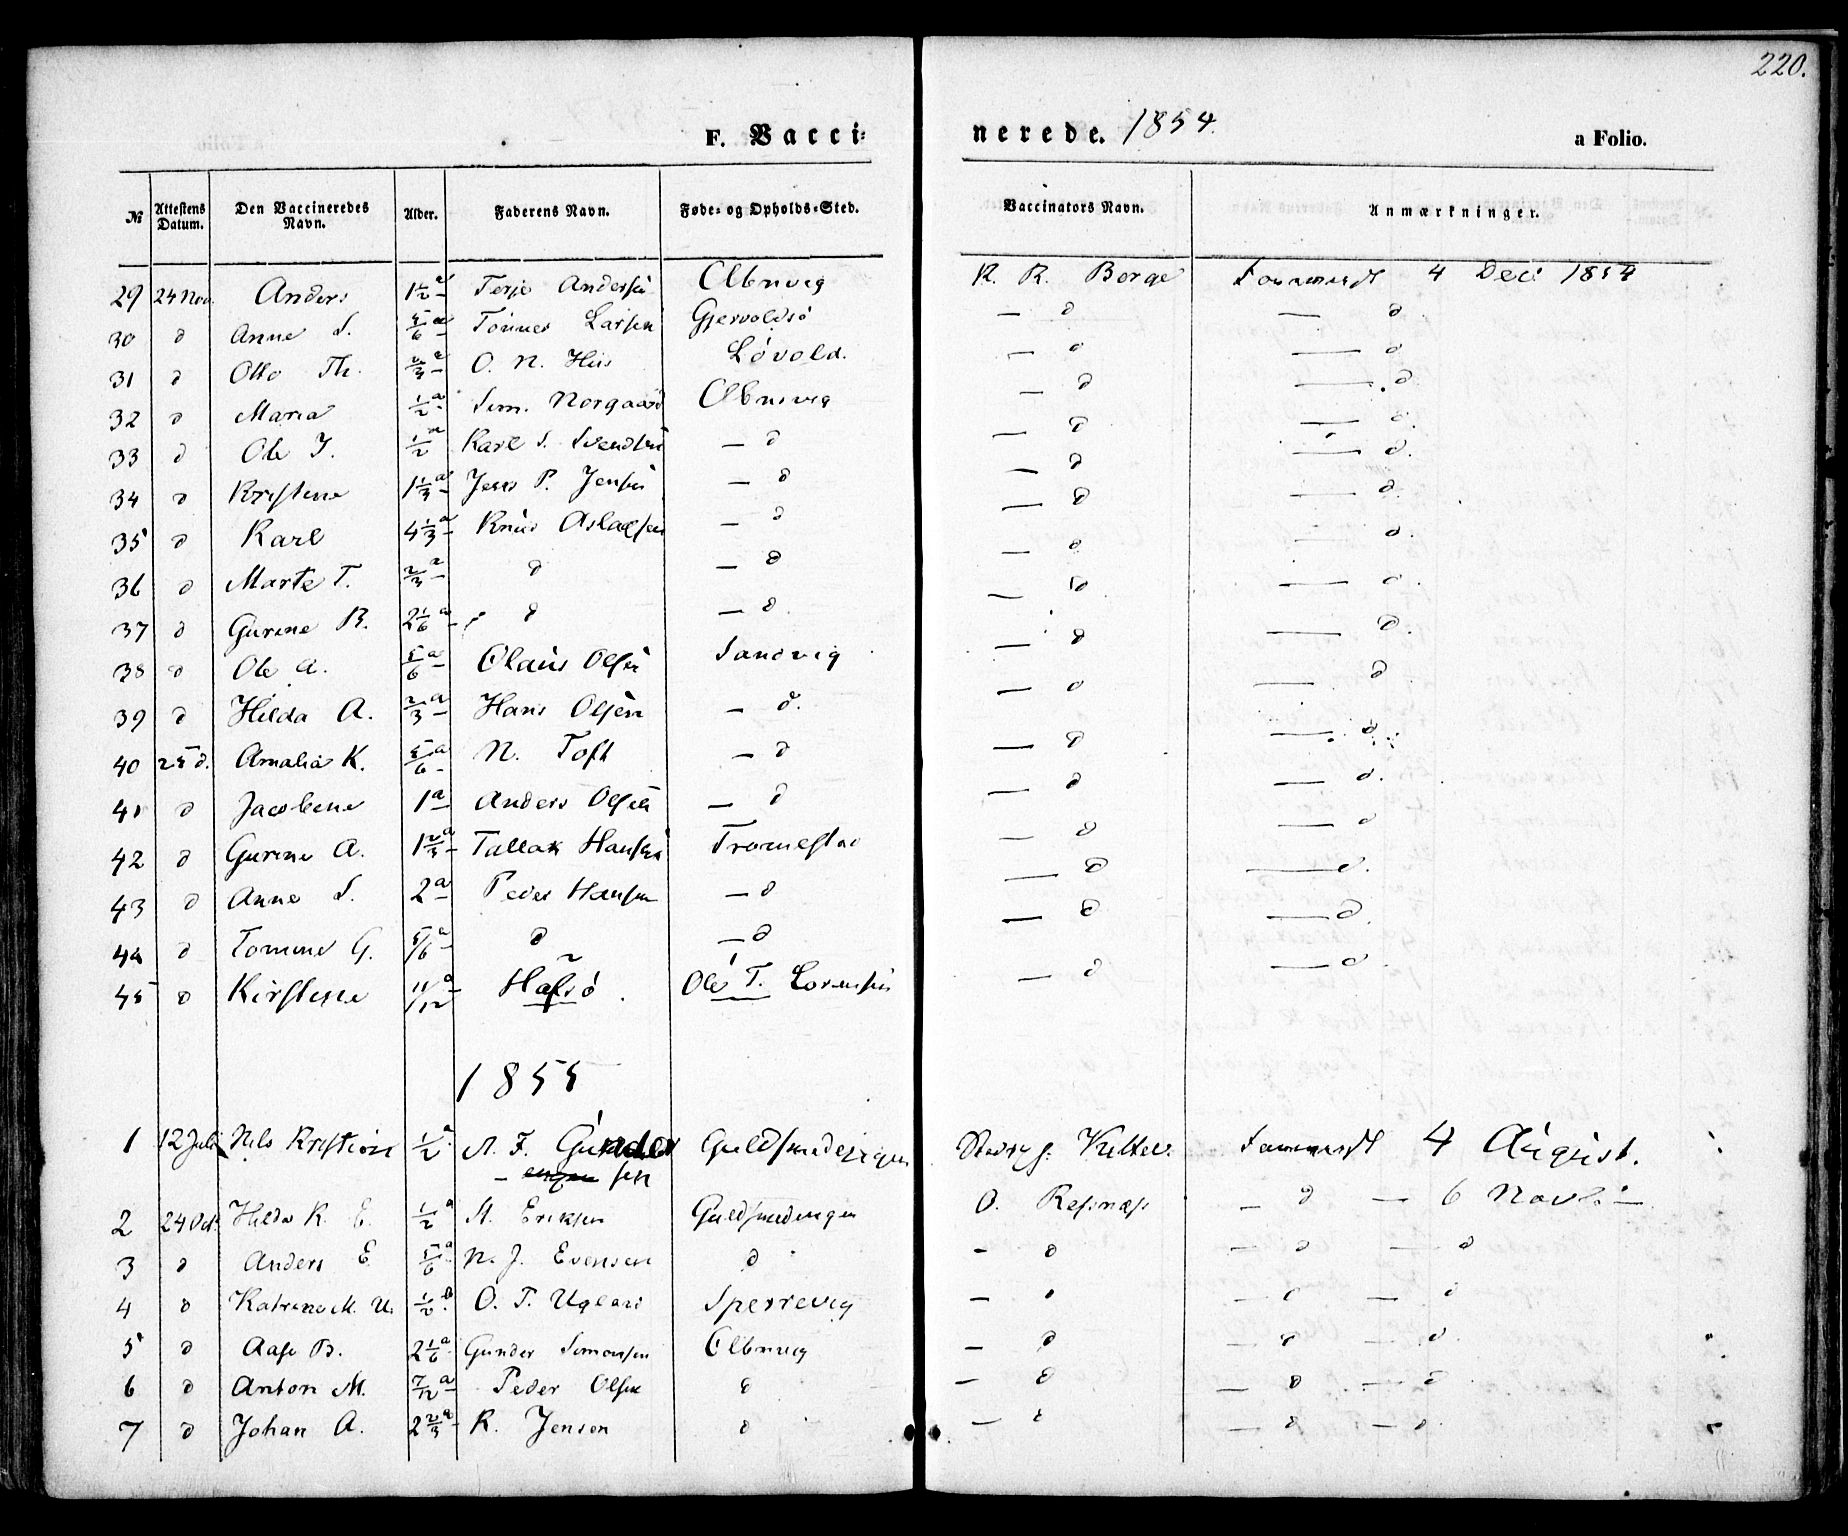 220.
F. Vacci= nerede. 1854. a Folio.
№ Attestens Datum. Den Vaccineredes Navn. Alder. Faderens Navn. Føde= og Opholds=Sted. Vaccinators Navn. Anmærkninger.
29 24 Nov. Anders 1 1/2 a Terje Andersen Olbnvig K. R. Berge 4 Dec: 1854
30 d Anne S. 5/6 a Tönnes Larsen Gjervoldsö — d — d
31 d Otto Th. 2/3 a O. N. Lövold. — d — d
32 d Maria 1/2 a Sim. Norgaard Olbnsvig — d — d
33 d Ole J. 1/2 a Karl S. Svendsen — d — d — d.
34 d Kristine 1 1/3 a Jens P. Jensen — d — d — d.
35 d Karl 4 1/3 a Knud Aslaksen — d — d — d.
36 d Marte T. 2/3 a d — d — d — d.
37 d Gurine B. 2 1/6 a d — d. — d — d.
38 d Ole A. 5/6 a Olaus Olsen Sandvig — d — d.
39 d Hilda A. 2/3 a Hans Olsen — d. — d — d
40 25 d. Amalia K. 5/6 a N. Toft — d — d — d
41 d Jacobine 1 a Anders Olsen — d — d — d.
42 d Gurine A. 1 2/3 a Tallak Hansen Tromestad — d — d
43 d Anne S. 2 a Peder Hansen — d — d — d.
44 d Tomine G. 5/6 a d — d — d — d.
45 d Kirstine 11/12 a Hafsö Ole T. Lorensen — d — d.
1855
1 12 Juli Nils Kristian 1/2 a N. F. Gunder Guldsmedengen 4 August.
– sen
2 24 Oct. Hilda K. E. 1/2 a M. Eriksen Guldsmedengen O. Refsnæs — d — 6 Novb: —
3 d Anders E. 5/6 a N. J. Evensen d – d — d — d
4 d Katrine M. U. 1/2 a O. T. Ugland Sperrevig – d — d — d
5 d Aase B. 2 1/6 a Gunder Simonsen Olbnvig — d — d — d.
6 d Anton M. 7/12 a Peder Olsen d — d — d — d
7 d Johan A. 2 2/3 a K. Jensen d — d — d — d.